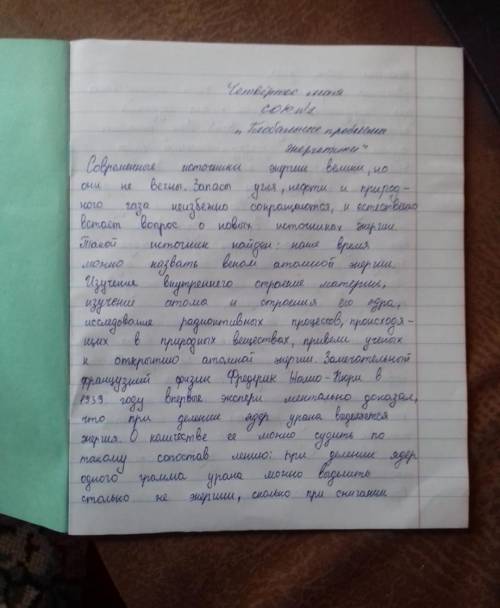 Четвёртое мая
СОЮ №2
"Глобальные проблемы
энергетики"
Современные источники энергии велики, но
они не вечны. Запасы угля, нефти и природ-
ного газа неизбежно сокращаются, и естественно
встаёт вопрос о новых источниках энергии.
Такой источник найден: наше время
можно назвать веком атомной энергии.
Изучение внутреннего строение материи,
изучение атома и строения его ядра,
исследование радиоктивных процессов, происходя-
щих в природных веществах, привели учёных
к открытию атомной энергии. Замечательной
французский физик Фредерик Жолио-Кюри в
1939 году впервые экспери ментально доказал,
что при делении ядер урана выделяется
энергия. О количестве её можно судить по
такому сопостав лению: при делении ядер
одного грамма урана можно выделить
столько же энергии, сколько при сжигании